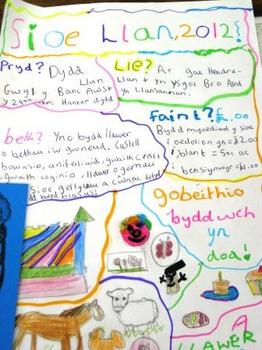 Sioe Llan, 2012!
Pryd? Dydd
Llun
Gwyl y Banc Awst
Hanner dydd
Lle? Ar gae
Llan + yn ysgol Bro Aled
yn Llansannan.
faint? £..00
Bydd mynediad y sioe
i oedolion yn £2.00
i blant = 50c ac
bensiynwyr
beth? Yno bydd llawer
o bethau i'w gwneud, Castell
bownsio, anifeiliaid,
coginio, llawer o gemau
Sioe geffylau a
gobeithio
bydd wch
yn
dod!
A
LLAWER